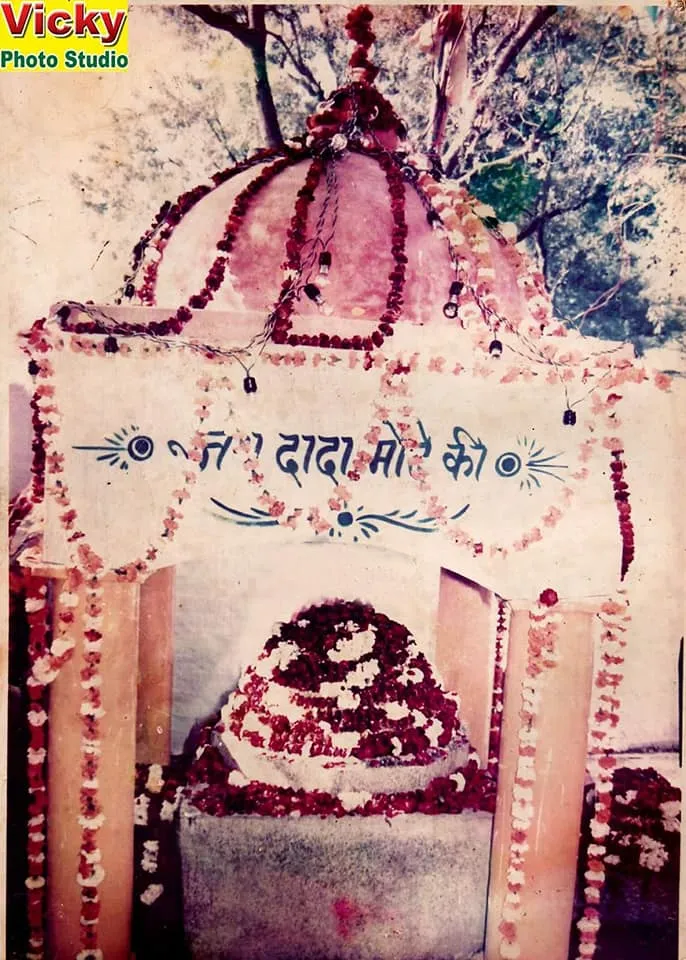 Vicky
Photo Studio
जय दादा मोटे की